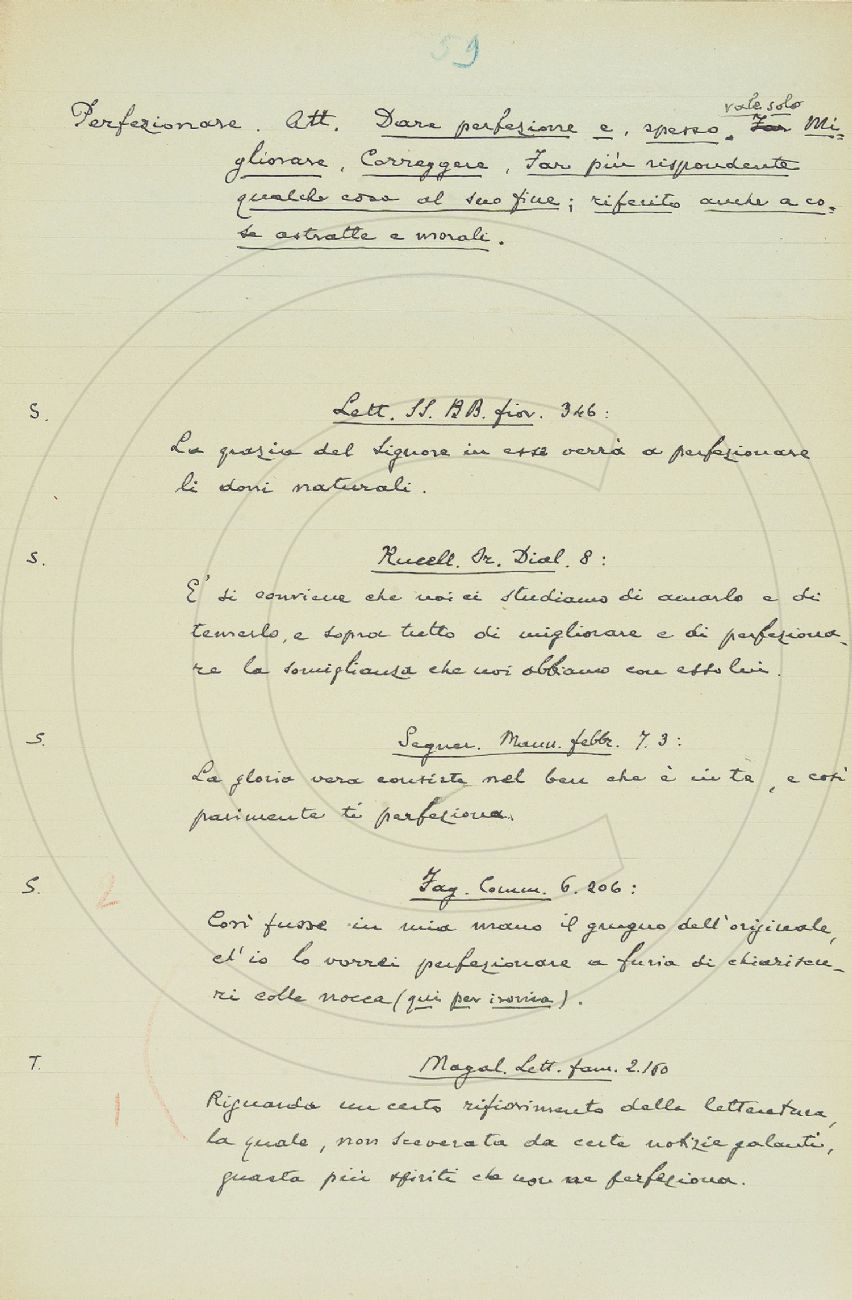 59
vale solo
Perfezionare. Att. Dare perfezione e, spesso, Far Mi-
gliorare, Correggere, Far più rispondente
qualche cosa al suo fine; riferito anche a co-
se astratte e morali.
S. Lett. SS. BB. fior. 346:
La grazia del Signore in esse verrà a perfezionare
li doni naturali.
S. Rucell. Or. Dial. 8:
E' si conviene che noi ci studiamo di amarlo e di
temerlo, e sopra tutto di migliorare e di perfeziona-
re la somiglianza che noi abbiamo con esso lui.
S. Segner. Mann. febbr. 7. 3:
La gloria vera consiste nel ben che è in te, e così
parimente ti perfeziona.
S. 2 Fag. Comm. 6. 206:
Così fusse in mia mano il grugno dell'originale,
ch'io lo vorrei perfezionare a furia di chiariscu-
ri colle nocca (qui per ironia).
T. Magal. Lett. fam. 2. 160
1 Riguarda un certo rifiorimento della letteratura,
la quale, non sceverata da certe notizie galanti,
guasta più spiriti che non ne perfeziona.